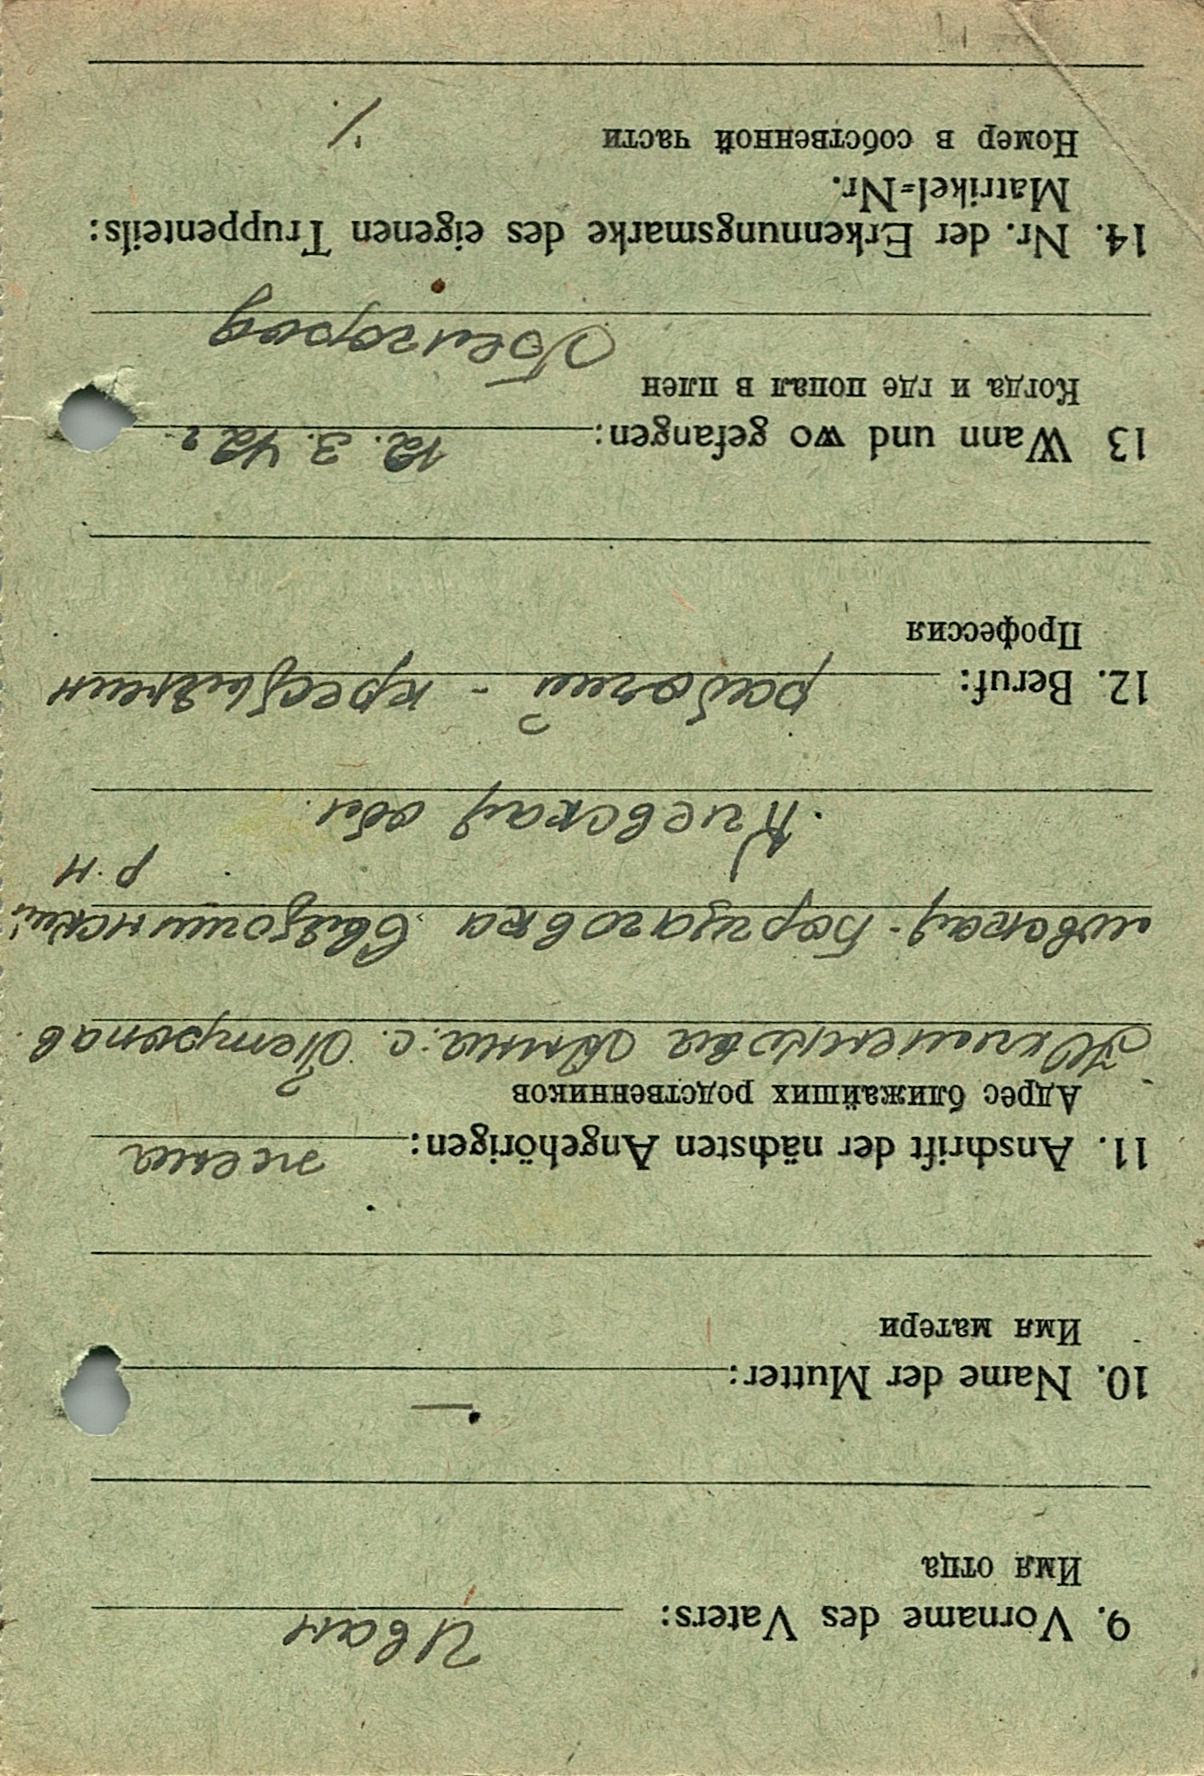 9. Vorname des Vaters: Иван
Имя отца
10. Name der Mutter: —
Имя матери
11. Anschrift der nächsten Angehörigen: жена
Адрес ближайших родственников
Анна. с. Петропав
ловская-Борщаговка
р-н
Киевская обл.
12. Beruf: рабочий - крестьянин
Профессия
13 Wann und wo gefangen: 12. 3. 42 г.
Когда и где попал в плен
Белгород
14. Nr. der Erkennungsmarke des eigenen Truppenteils:
Matrikel=Nr.
Номер в собственной части